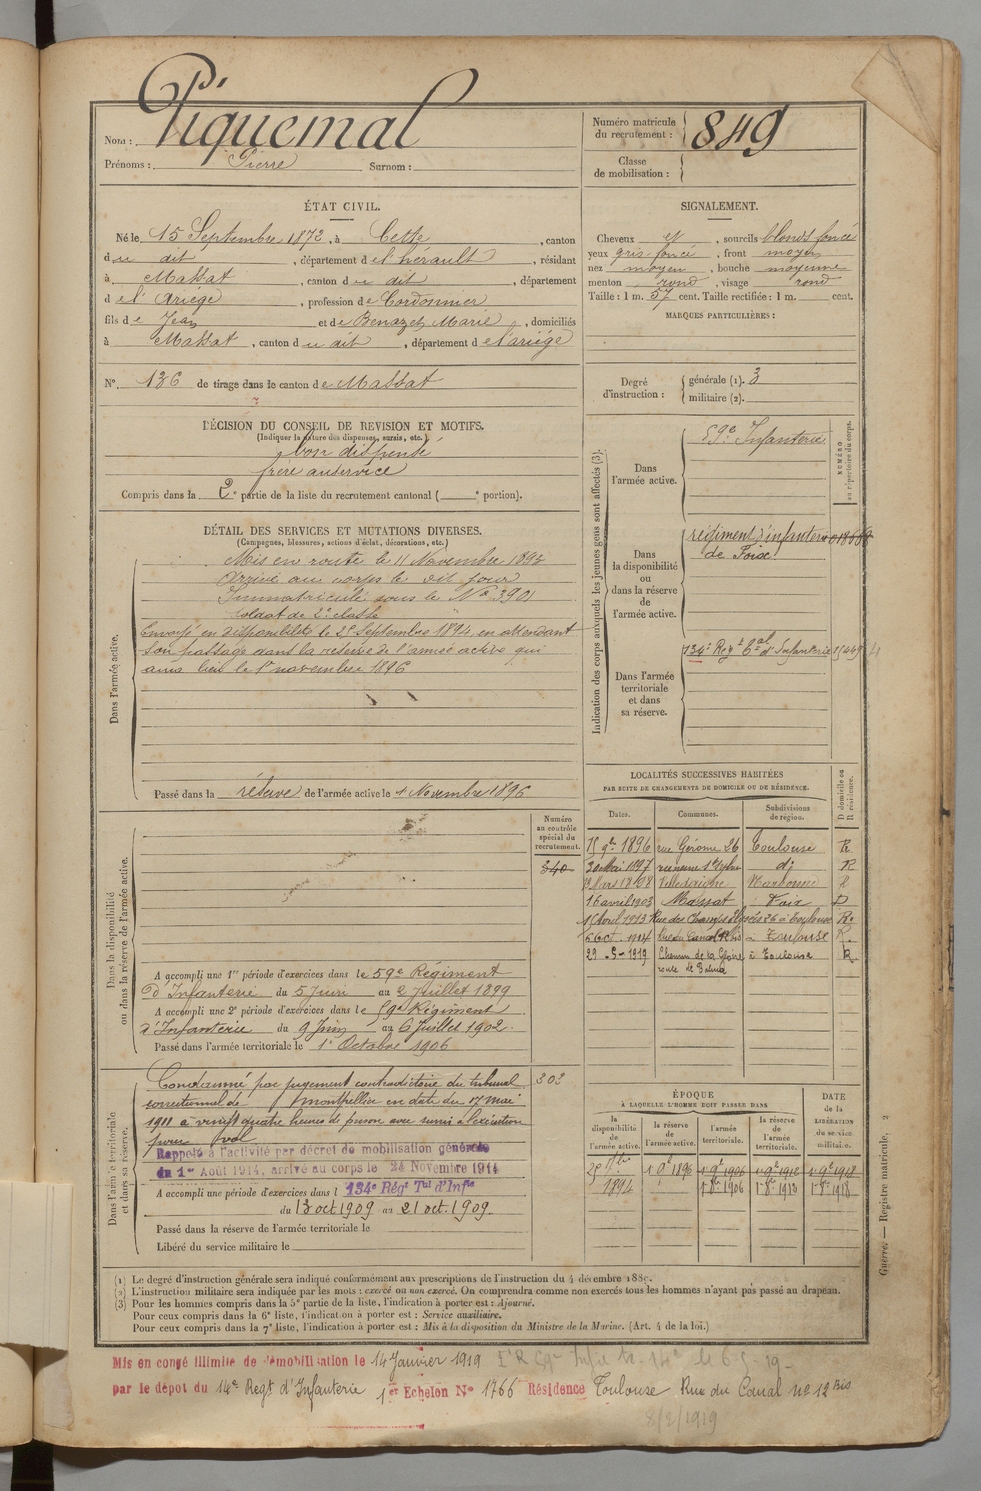 Nom : Piquemal
Prénoms : Pierre Surnom :
Numéro matricule
du recrutement : 849
Classe
de mobilisation :
ÉTAT CIVIL.
Né le 15 Septembre 1872, à Cette, canton
du dit, département de l'hérault, résidant
à Massat, canton du dit, département
de l'Ariège, profession de Cordonnier
fils de Jean et de Benazet Marie, domiciliés
à Massat, canton du dit, département de l'ariège
N° 136 de tirage dans le canton de Massat
SIGNALEMENT.
Cheveux et, sourcils blonds foncé
yeux gris foncé, front moyen
nez moyen, bouche moyenne
menton rond, visage rond
Taille : 1 m. 57 cent. Taille rectifiée : 1 m. cent.
MARQUES PARTICULIÈRES :
Degré
d'instruction :
générale (1). 3
militaire (2).
DÉCISION DU CONSEIL DE REVISION ET MOTIFS.
(Indiquer la nature des dispenses, sursis, etc.)
bon dispensé
frère au service
Compris dans la 2e partie de la liste du recrutement cantonal ( e portion).
DÉTAIL DES SERVICES ET MUTATIONS DIVERSES.
(Campagnes, blessures, actions d'éclat, décorations, etc.)
Dans l'armée active.
Mis en route le 11 Novembre 1893
Arrivé au corps le dit jour
Immatriculé sous le N° 3901
soldat de 2e classe
Envoyé en disponibilité le 25 Septembre 1894, en attendant
son passage dans la réserve de l'armée active qui
aura lieu le 1er novembre 1896
Passé dans la réserve de l'armée active le 1 Novembre 1896
Indication des corps auxquels les jeunes gens sont affectés (3).
NUMÉRO
au répertoire du corps.
Dans
l'armée active.
59e Infanterie
Dans
la disponibilité
ou
dans la réserve
de
l'armée active.
régiment d'infanterie
de Foix
Dans l'armée
territoriale
et dans
sa réserve.
134e Regt Tal d'Infanterie
LOCALITÉS SUCCESSIVES HABITÉES
PAR SUITE DE CHANGEMENTS DE DOMICILE OU DE RÉSIDENCE.
Dates. Communes. Subdivisions de région. D domicile ou R résidence.
1896 rue Gérome 26 Toulouse R
30 Mai 1897 di R
Mars 1898 Villedaigne Narbonne R
16 avril 1903 Massat Foix D
15 Avril 1913 Rue des Champs Elysées 26 à Toulouse R.
6 Oct. 1914 Rue du Canal 12 bis à Toulouse R.
29-5-1919 Chemin de la Gloire à Toulouse R
route de Balma
Dans la disponibilité
ou dans la réserve de l'armée active.
Numéro
au contrôle
spécial du
recrutement.
340
A accompli une 1re période d'exercices dans le 59e Régiment
d'Infanterie du 5 Juin au 2 Juillet 1899
A accompli une 2e période d'exercices dans le 59e Régiment
d'Infanterie du 9 Juin au 6 Juillet 1902.
Passé dans l'armée territoriale le 1er Octobre 1906
Dans l'armée territoriale
et dans sa réserve.
303
Condamné par jugement contradictoire du tribunal
correctionnel de Montpellier en date du 17 mai
1911 a vingt quatre heures de prison avec sursis à l'exécution
pour vol
Rappelé à l'activité par décret de mobilisation générale
du 1er Août 1914, arrivé au corps le 24 Novembre 1914
A accompli une période d'exercices dans l 134e Régt Tal d'Infie
du 13 oct 1909 au 21 oct. 1909.
Passé dans la réserve de l'armée territoriale le
Libéré du service militaire le
ÉPOQUE
À LAQUELLE L'HOMME DOIT PASSER DANS
la disponibilité de l'armée active.
la réserve de l'armée active.
l'armée territoriale.
la réserve de l'armée territoriale.
DATE
de la
LIBÉRATION
du service
militaire.
25 7bre 1894
1 9e 1896 1 9e 1906 1 9e 1912 1 9e 1918
1 8re 1906 1 8re 1912 1 8re 1918
Guerre. — Registre matricule, 2
(1) Le degré d'instruction générale sera indiqué conformément aux prescriptions de l'instruction du 4 décembre 1889.
(2) L'instruction militaire sera indiquée par les mots : exercé ou non exercé. On comprendra comme non exercés tous les hommes n'ayant pas passé au drapeau.
(3) Pour les hommes compris dans la 5e partie de la liste, l'indication à porter est : Ajourné.
Pour ceux compris dans la 6e liste, l'indication à porter est : Service auxiliaire.
Pour ceux compris dans la 7e liste, l'indication à porter est : Mis à la disposition du Ministre de la Marine. (Art. 4 de la loi.)
Mis en congé illimité de démobilisation le 14 Janvier 1919
par le dépot du 14e Regt d'Infanterie 1er Echelon N° 1766 Résidence Toulouse Rue du Canal no 12 Bis
8/2/1919